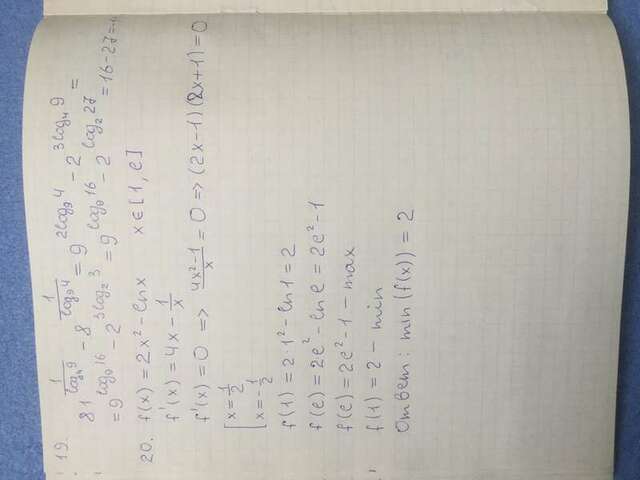 19. 81^(1/log₄9) - 8^(1/log₉4) = 9^(2log₉4) - 2^(3log₄9)
= 9^(log₉16) - 2^(3log₂3) = 9^(log₉16) - 2^(log₂27) = 16-27=-1
20. f(x) = 2x² - lnx x∈[1, e]
f'(x) = 4x - 1/x
f'(x) = 0 => (4x²-1)/x = 0 => (2x-1)(2x+1)=0
[x = 1/2
[x = -1/2
f(1) = 2·1² - ln1 = 2
f(e) = 2e² - lne = 2e² - 1
f(e) = 2e² - 1 - max
f(1) = 2 - min
Ответ: min(f(x)) = 2